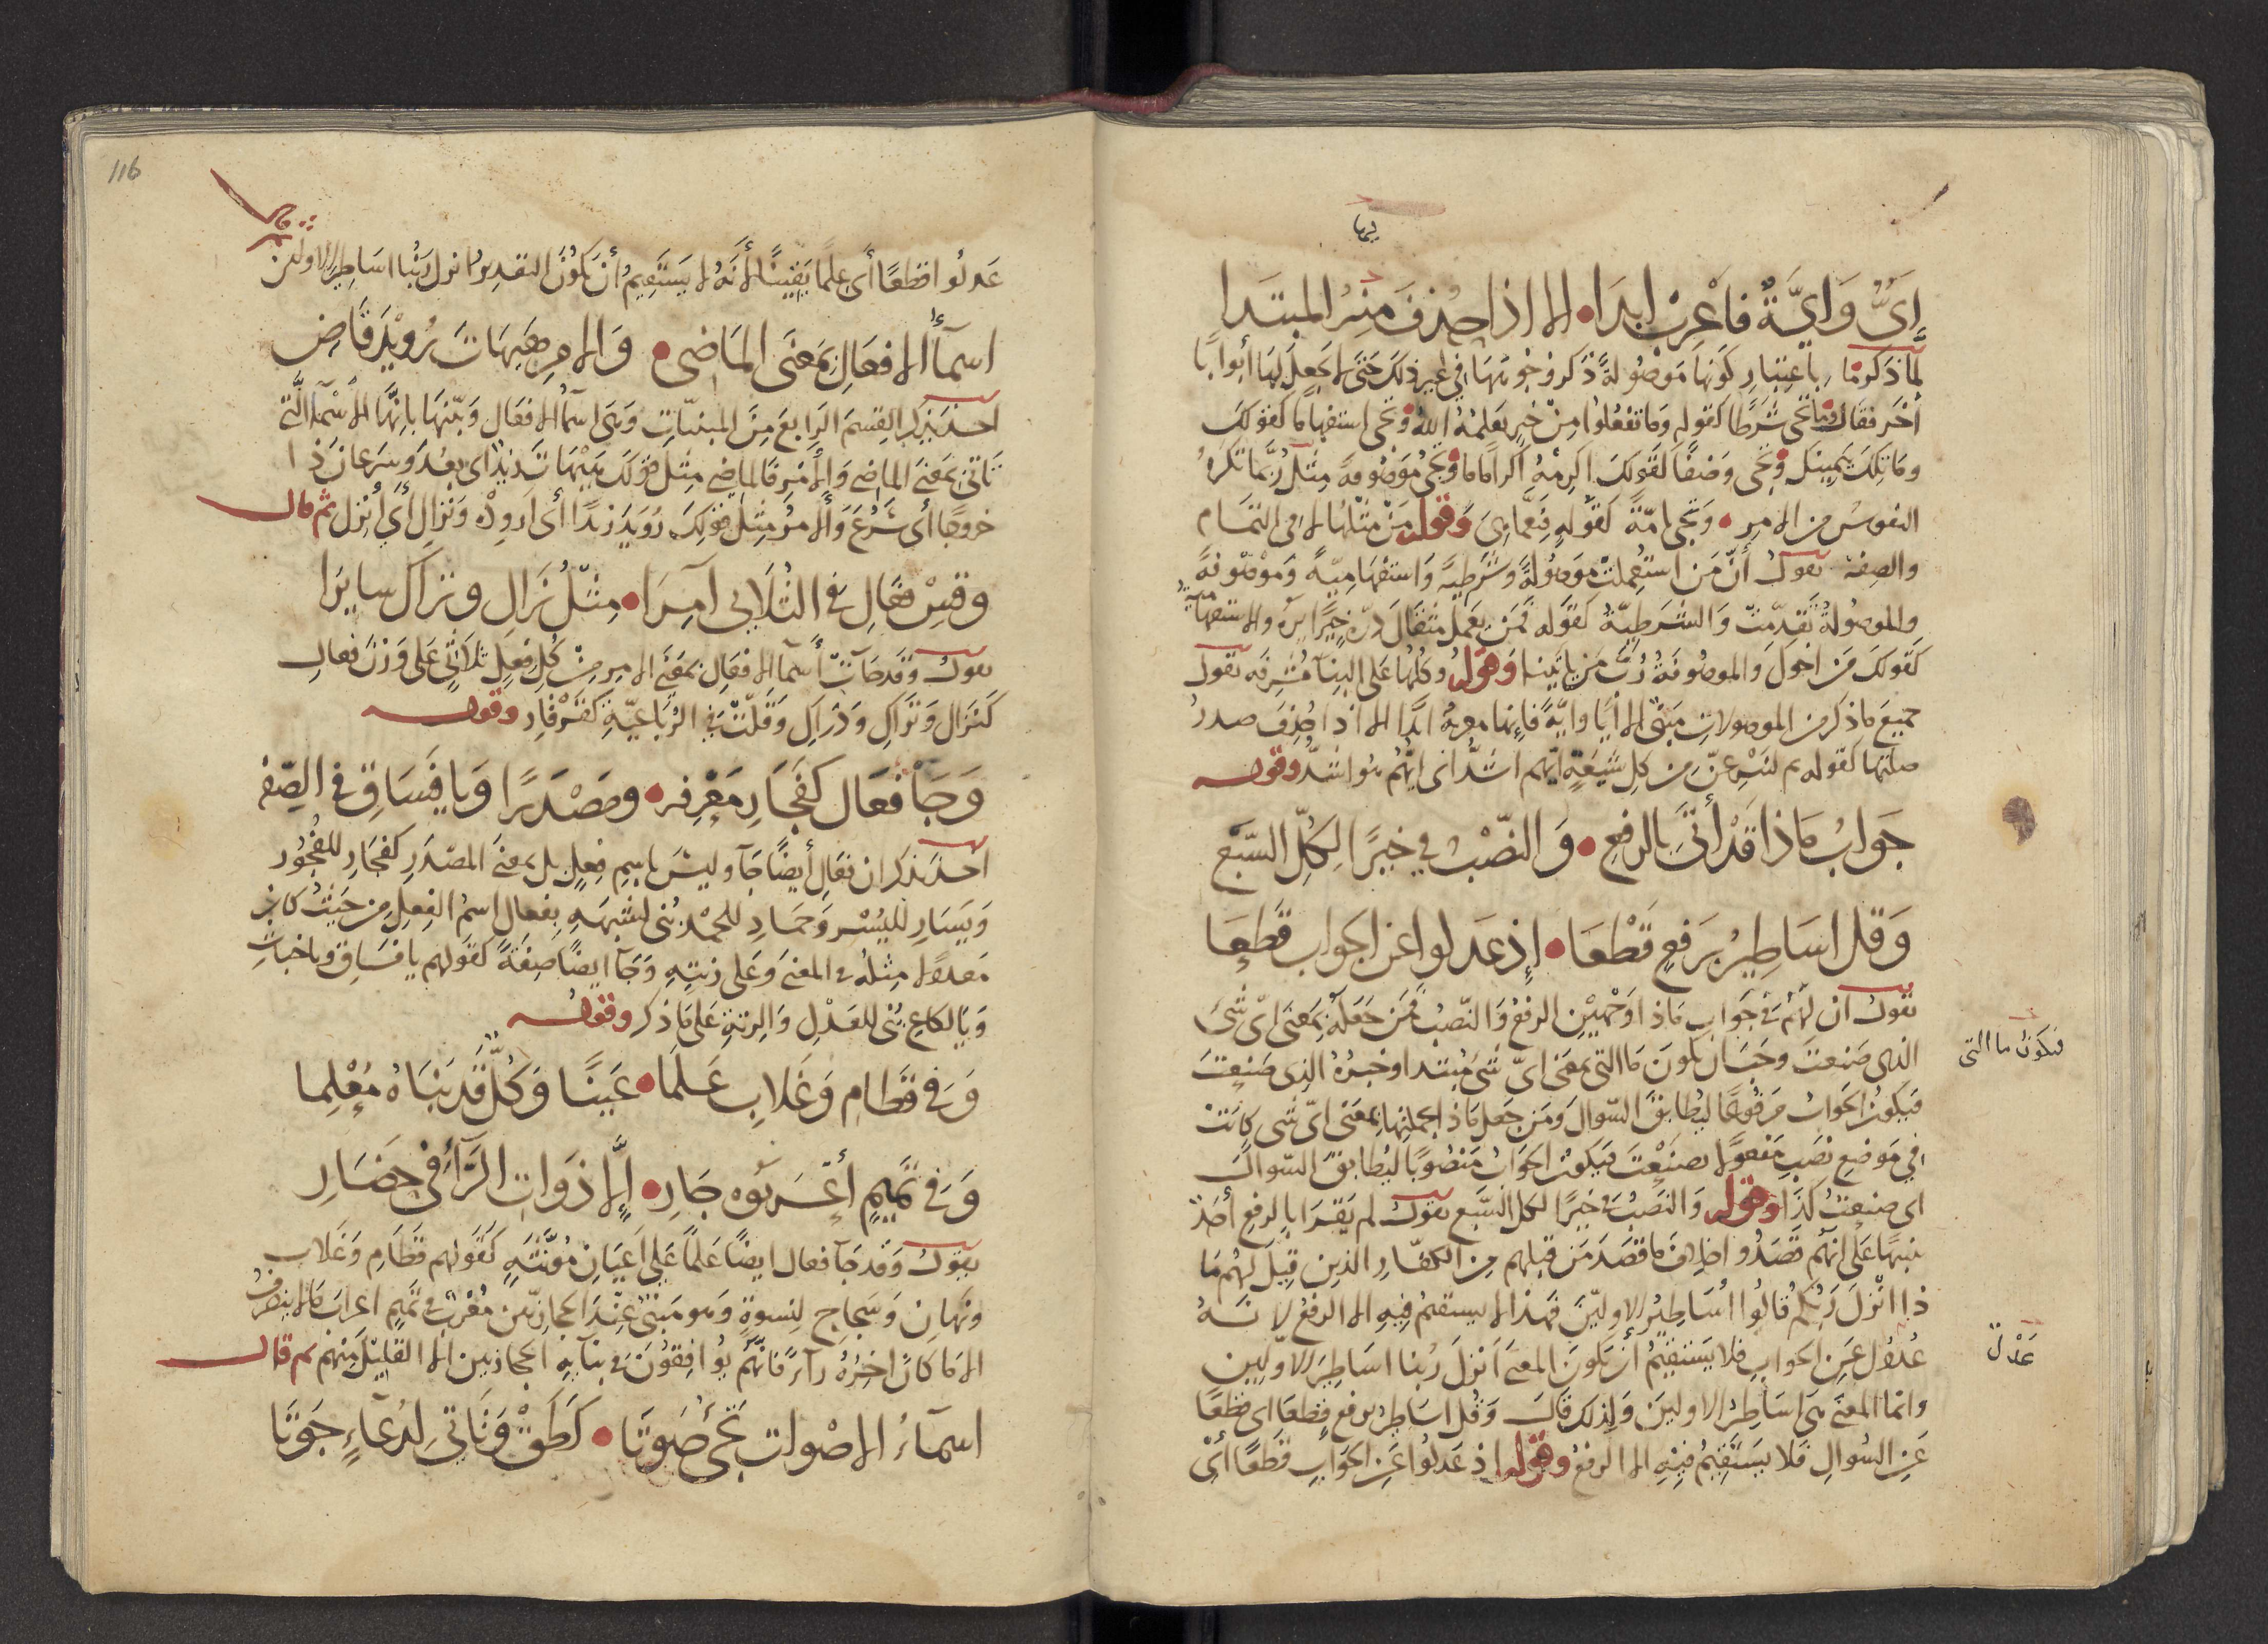 بها
إيٌّ وَايَّةٌ فاَعْرِبْ ابدَا • الا اذا حذف منه المبتدا
لما ذكر ما باعتبار كونها موصولة ذكر وجوهها في غير ذلك حتى لا يجعل لها أبوابا
أخر فقال وما تجى شرطا كقوله وما تفعلوا من خير يعلمه الله وتجى استفهاما كقولك
وما تلك بيمينك وتجى وصفا كقولك اكرمه اكراما ما وتجى موصوفة مثل ربما تكره
النفوس من الامر • وتجى تامة كقوله فنعما هي وقوله من مثلها الا في التمام
والصفة تقول أن من استعملت موصولة وشرطية واستفهامية وموصوفة
والموصولة تقدمت والشرطية كقوله فمن يعمل مثقال ذرة خيرا يره والاستفهامية
كقولك من اخوك والموصوفة رب من ياتينا وقوله وكلها على البناء مشرفه تقول
جميع ما ذكر من الموصولات مبنى الا أيا وايَّة فإنها معربة ابدًا الا اذا حذف صدر
صلتها كقوله ثم لننزعن من كل شيعة ايهم اشد أى ايهم هو اشد وقوله
جواب ماذا قد أتى بالرفع • والنصب في خيرا لكل السبع
وقل اساطير برفع قطعا • إذ عدلوا عن الجواب قطعا
تقول ان لهم في جواب ماذا وجهين الرفع والنصب فمن جعله بمعنى اى شى
الذى صنعت وجب ان يكون ما التى بمعنى اىّ شى مبتدا وخبره الذى صنعت
فيكون ما التى
فيكون الجواب مرفوعا ليطابق السوال ومن جعل ماذا بجملتها بمعنى اىّ شى كانت
في موضع نصب مفعولا لصنعت فيكون الجواب منصوبا ليطابق السوال
اى صنعت كذا وقوله والنصب في خيرا لكل السبع تقول لم يقرا بالرفع أحد
تنبيها على انهم قصدوا خلاف ما قصد من قبلهم من الكفار الذين قيل لهم ما
ذا انزل ربكم قالوا أساطير الاولين فهذا لا يستقيم فيه الا الرفع لانه
عَدْل
عدول عن الجواب فلا يستقيم أن يكون المعنى أنزل ربنا اساطير الاولين
وانما المعنى هي اساطير الاولين ولذلك قال وقل اساطير برفع قطعا اى قطعا
عن السوال فلا يستقيم فيه الا الرفع وقوله اذ عدلوا عن الجواب قطعا أى
116
عدلوا قطعا أى علما يقينا لأنه لا يستقيم أن يكون التقدير انزل ربنا اساطير الاولين
ثم قال
اسمآأ الافعال بمعنى الماضى • والامر هيهات رويد قاض
اخذ يذكر القسم الرابع من المبنيات وهى اسما الافعال وبينها بانها الاسمآ التى
تاتى بمعنى الماضى والأمر فالماضى مثل قولك هيهات تدنيا اى بعد وسرعان ذا
خروجا أى سرع والامر مثل قولك رويد زيدا أى ارود ونزال أى أنزل ثم قال
وقس فعال في الثلاثى آمرا • مثل نزال وتراك سايرا
تقول وقد جآت أسمآ الافعال بمعنى الامر من كل فعل ثلاثى على وزن فعال
كنزال وتراك ودراك وقلت في الرباعية كقرقار وقوله
وجا فعال كفجار معرفه • ومصدرا ويا فساق في الصفه
اخذ يذكر ان فعال أيضا جآ وليس باسم فعل بل بمعنى المصدر كفجار للفجور
ويسار للميسر وحماد للحمد بنى لشبهه بفعال اسم الفعل من حيث كان
معدولا مثله في المعنى وعلى زنته وجآ ايضا صفة كقولهم يا فساق ويا خباث
ويا لكاع بنى للعدل والزنة على ما ذكر وقوله
وفي قطام وغلاب علما • عينا وكل قد بناه معلما
وفي تميم أعربوه جار • إلا ذوات الرآء في حضار
تقول وقد جآ فعال ايضا علما على اعيان مونثه كقولهم قطام وغلاب
وبهان وسجاح لنسوة وهو مبنى عند الحجازيين معرب في تميم اعراب مالا ينصرف
الا ما كان اخره رآء فانهم يوافقون في بنآيه الحجازيين الا القليل منهم ثم قال
اسمآء الاصوات تجى صوتا • كطق وتاتى لدعآء جوتا